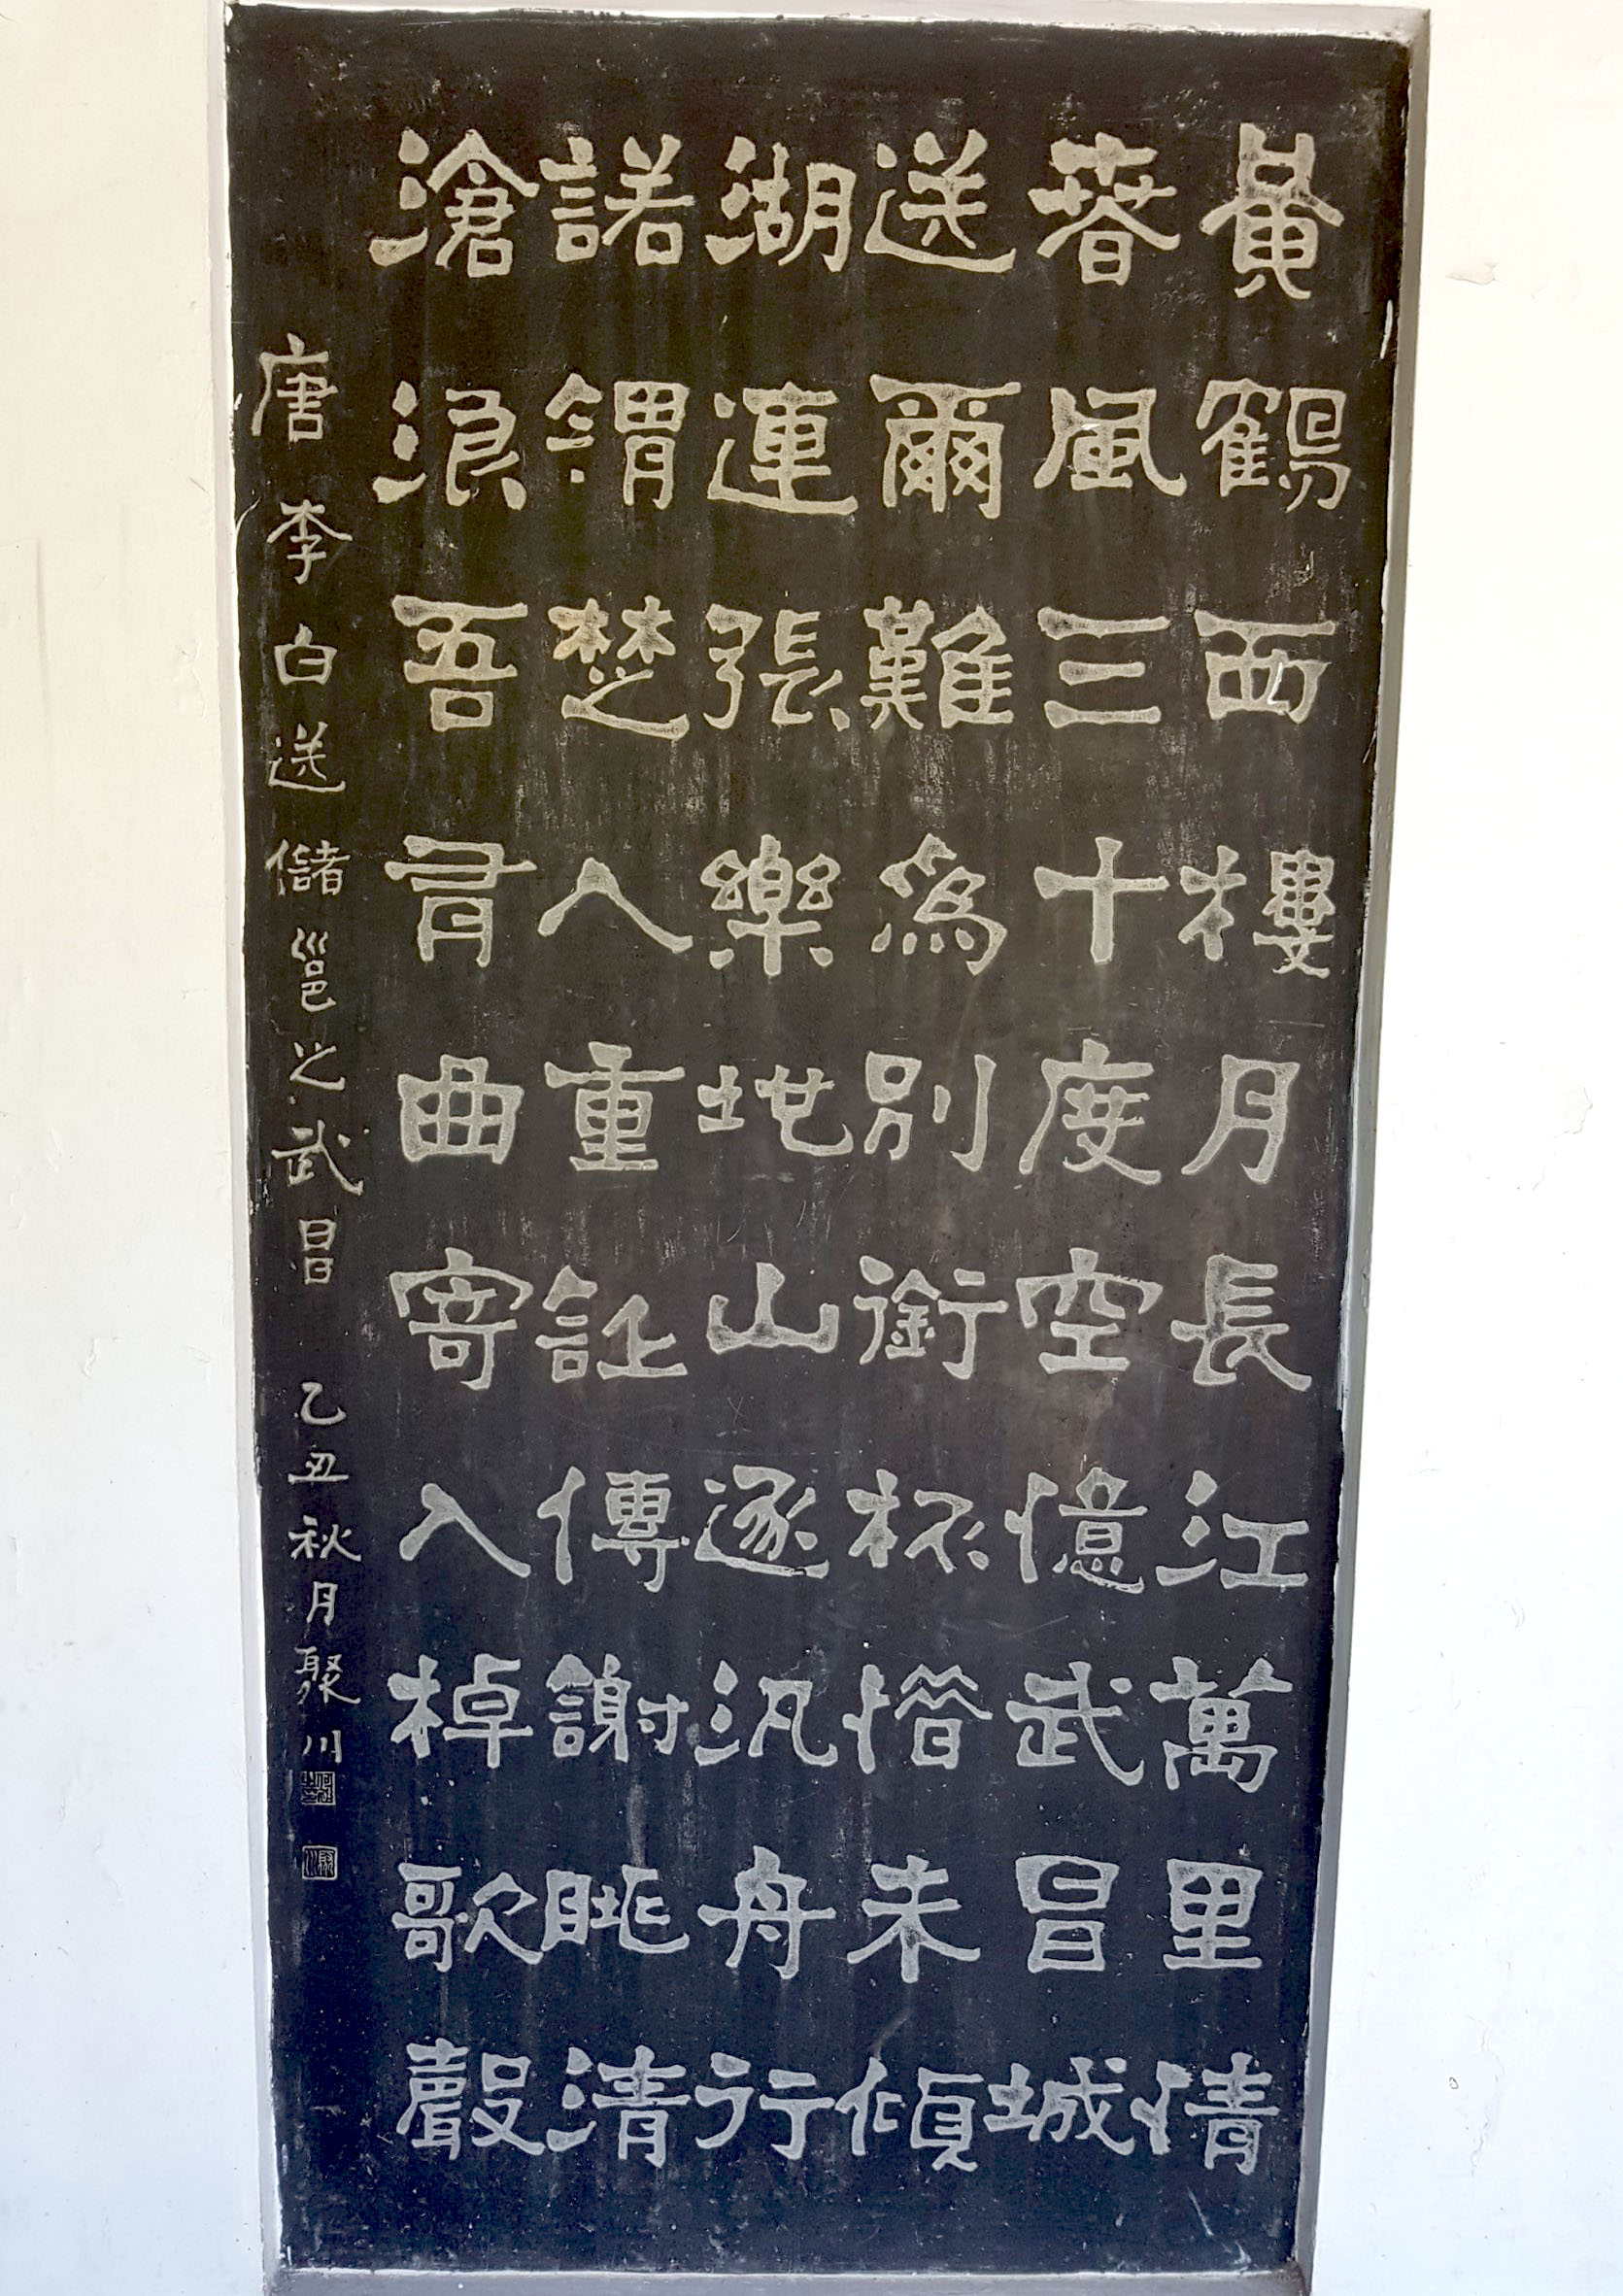 黃鶴西樓月長江萬里情
春風三十度空憶武昌城
送爾難為別銜杯惜未傾
湖連張樂地山逐汎舟行
諾謂楚人重詩傳謝朓清
滄浪吾有曲寄入棹歌聲
唐李白送儲邕之武昌 乙丑秋月聚川